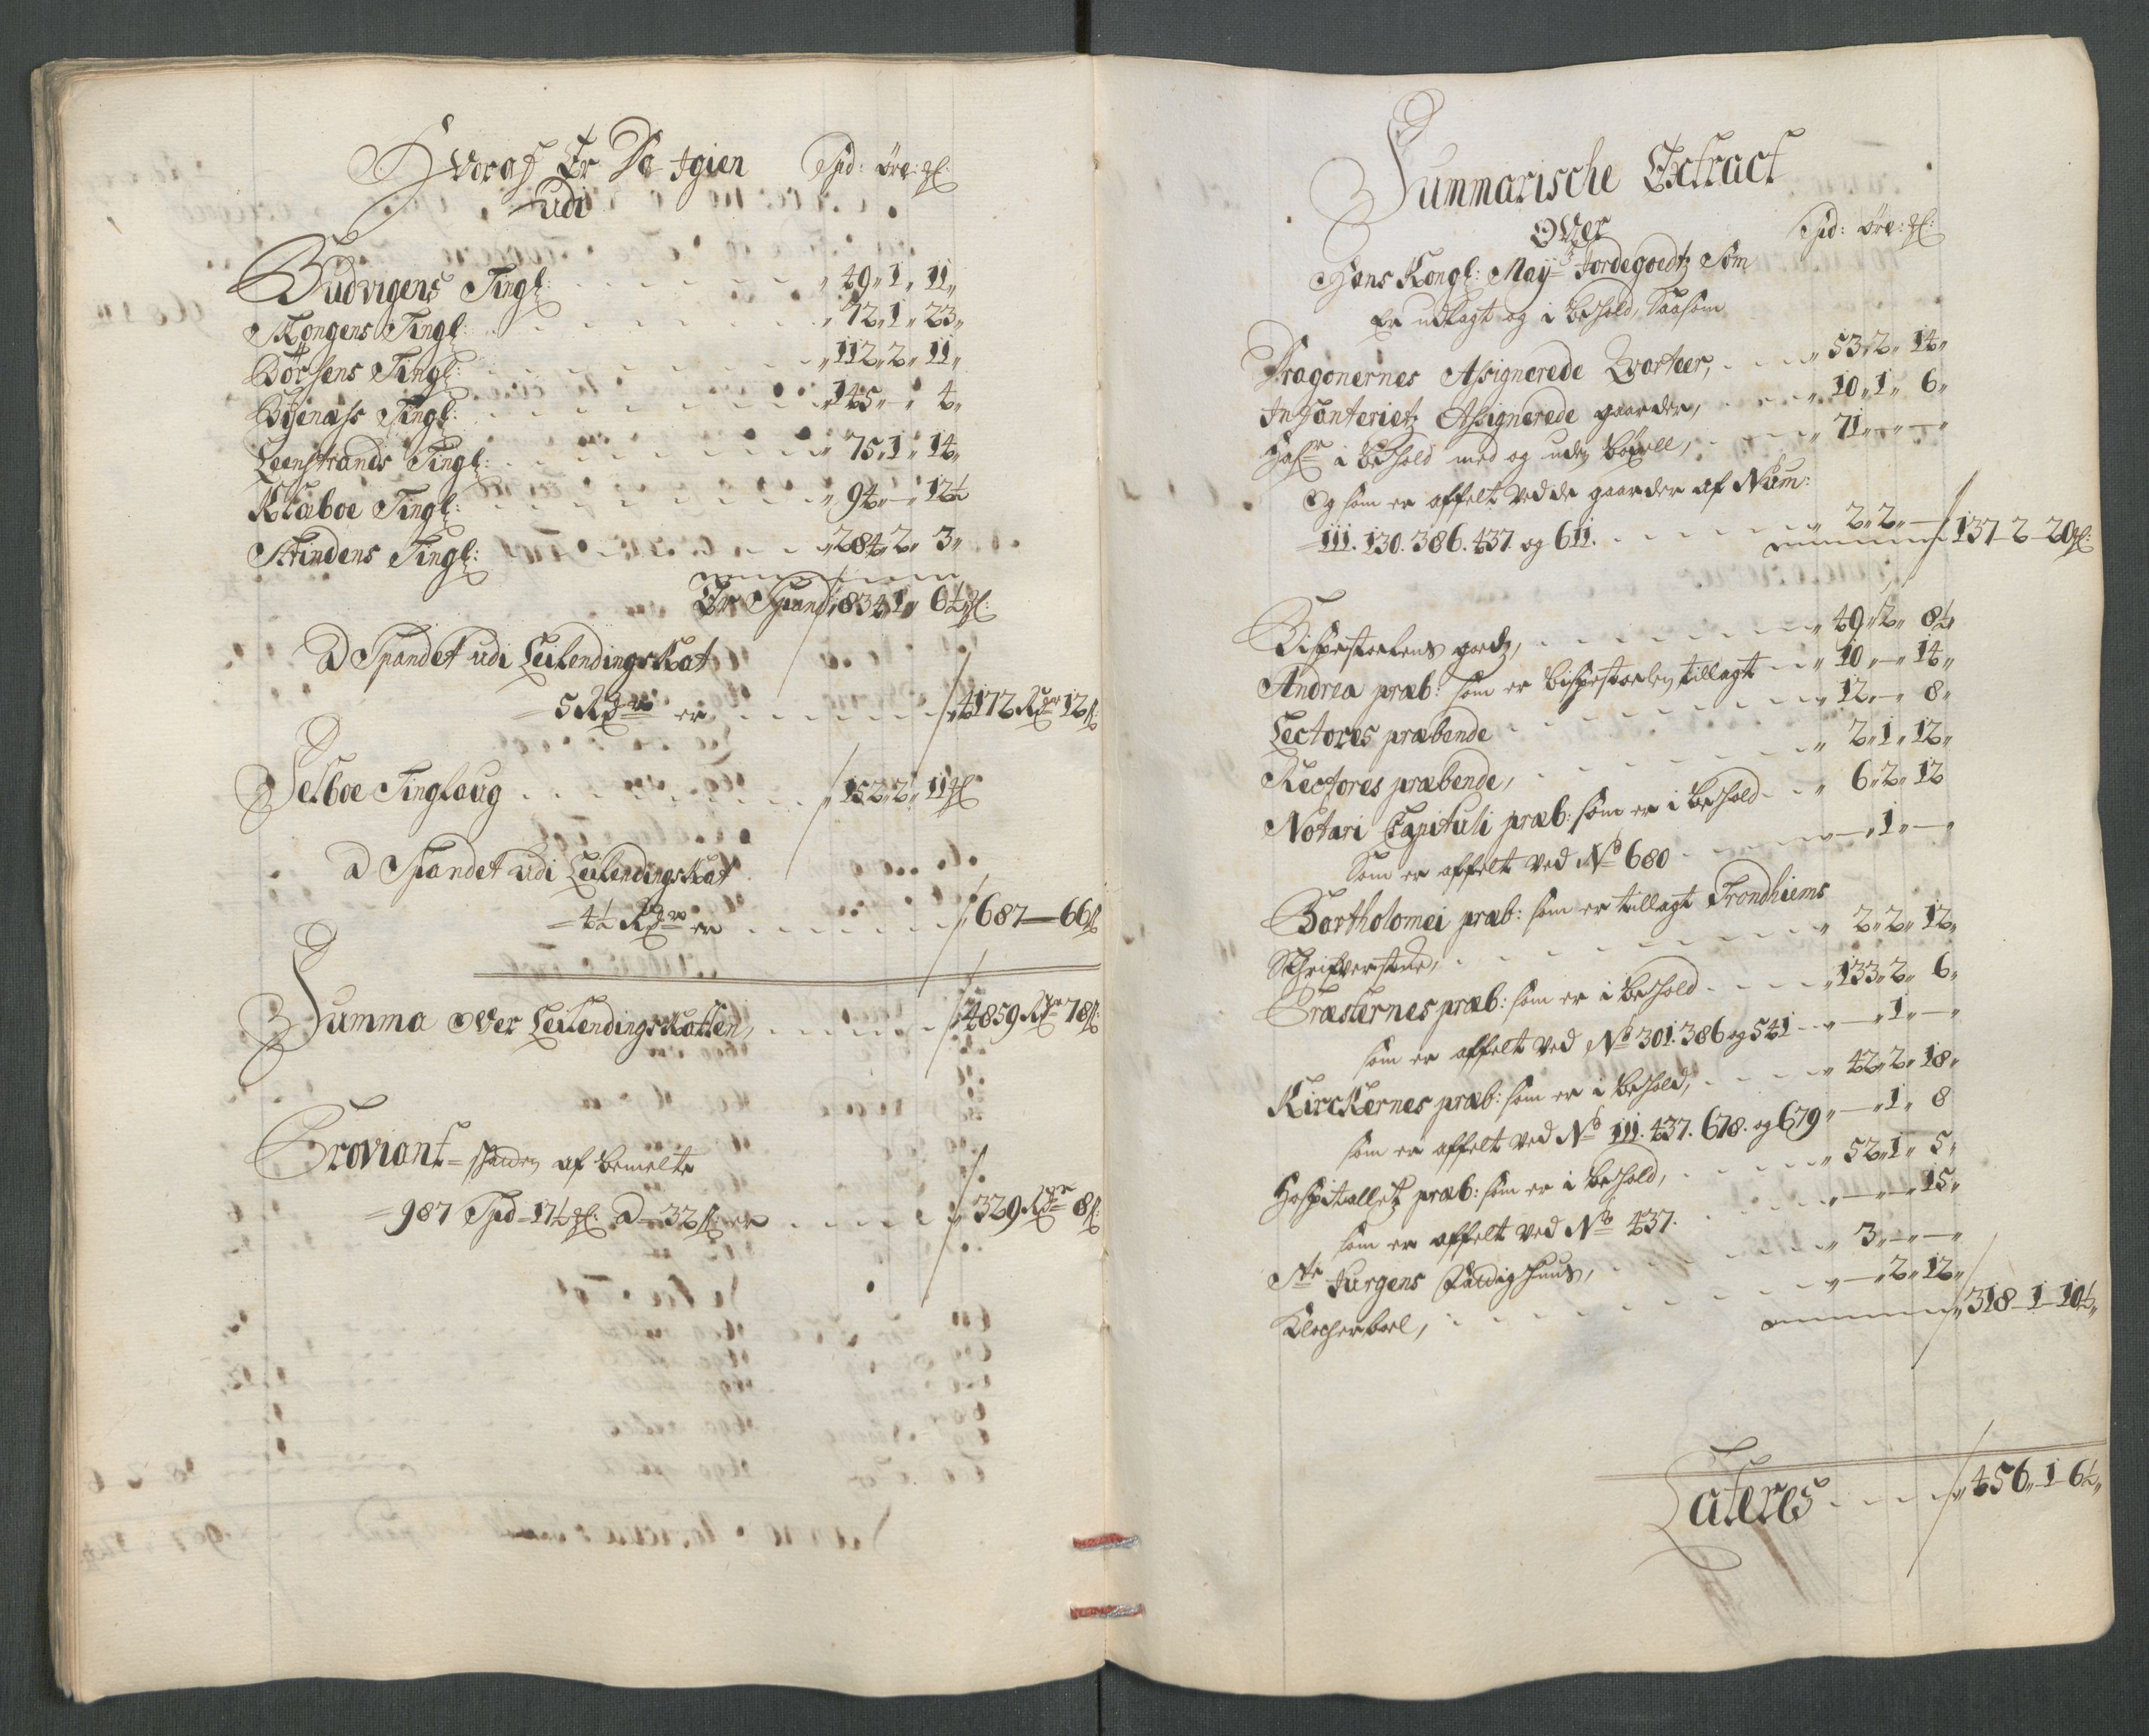 Hvoraf Er Sæ Igien Spd: öre: ꝗl:
udi
Budvigens Tingl: 49 " 1 " 11 "
Schongens Tingl: 72 " 1 " 23 "
Börsens Tingl: 112 " 2 " 11 "
Byenæss Tingl: 145 " — " 4 "
Leenstrands Tingl: 75 " 1 " 14 "
Klæboe Tingl: 94 " — " 12½
Strindens Tingl: 284 " 2 " 3 "
Er Spand 834 " 1 " 6½ ꝗl:
a Spandet udi Leilendingskat
5 Rdr er 4172 Rdr 12 s
Selboe Tinglaug 152 " 2 " 11 ꝗl
a Spandet udi Leilendingskat
4½ Rdr er 687 — 66 s
Summa over Leilendingskatten, 4859 Rdr 78 s
Proviant-skatten af bemelte
987 Spd - 17½ ꝗl: a 32 s: er 329 Rdr 8 s
Summarische Extract
over Spd: öre: ꝗl:
Hans Kongl: May:ts Jordegodtz Som
Er udlagt og i Behold, Saasom
Dragonernes Assignerede Qvarteer, 53 " 2 " 14 "
Infanteriets Assignerede gaarder, 10 " 1 " 6 "
i Behold med og uden Böxell, 71 " — " — "
Og som er affelt ved de gaarder af Num:
111. 130. 386. 437. og 611. 2 " 2 " —
137 - 2 - 20 ꝗl:
Bispestoelens godz, 49 " 2 " 8½
Andrea præb: som er bispestoelen tillagt 10 " — " 14 "
Lectores præbende 12 " — " 8 "
Rectores præbende, 2 " 1 " 12 "
Notari Capituli præb: som er i behold 6 " 2 " 12
Som er affelt ved No 680 — " 1 " — "
Bartholomei præb: som er tillagt Trondhiems
2 " 2 " 12 "
Præsternes præb: som er i behold 133 " 2 " 6 "
som er affelt ved No 301. 386 og 541 — " 1 " — "
Kirckernes præb: som er i behold, 42 " 2 " 18 "
som er affelt ved No 111. 437. 678. og 679 " — " 1 " 8
Hospitallets præb: som er i behold, 52 " 1 " 5 "
som er affelt ved No 437. — " — " 15 "
Ste Jurgens Fattighuus, 3 " — " — "
Klocherboel, — " 2 " 12 "
318 - 1 - 10½ "
Lateres 456 " 1 - 6½ "